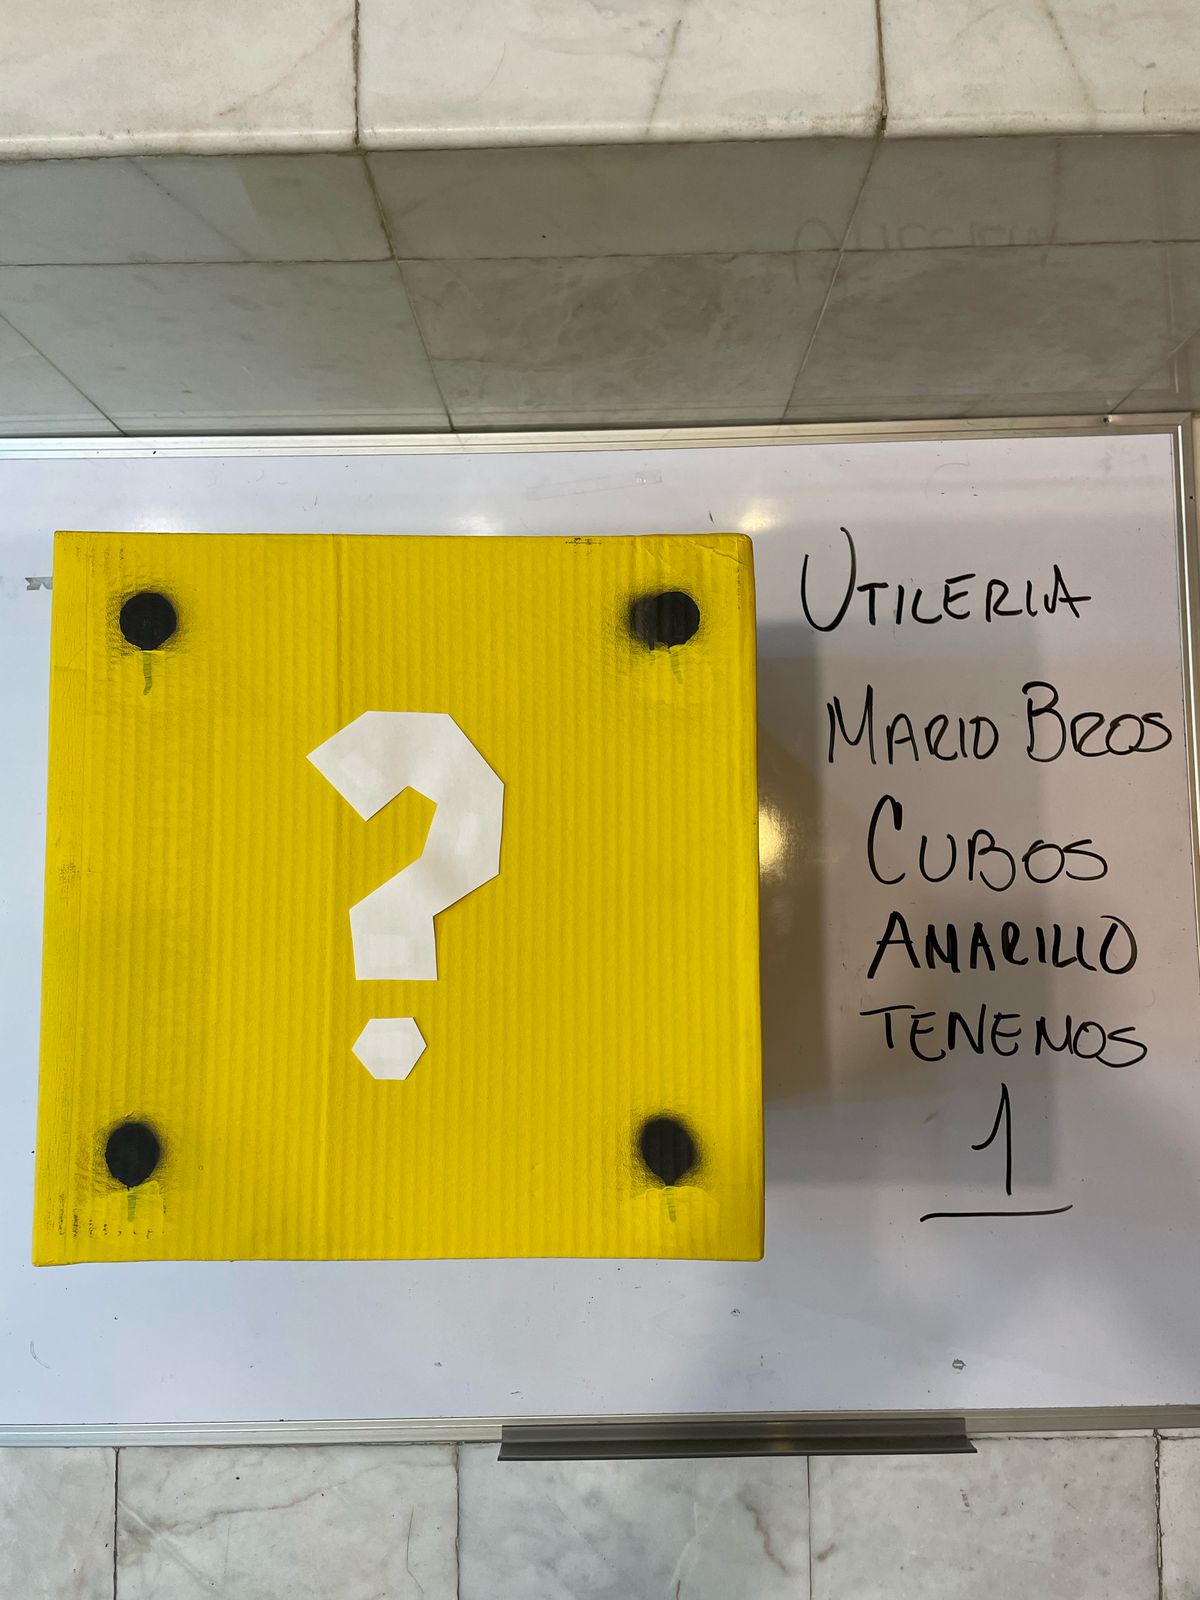 ?
UTILERIA
MARIO BROS
CUBOS
AMARILLO
TENEMOS
1